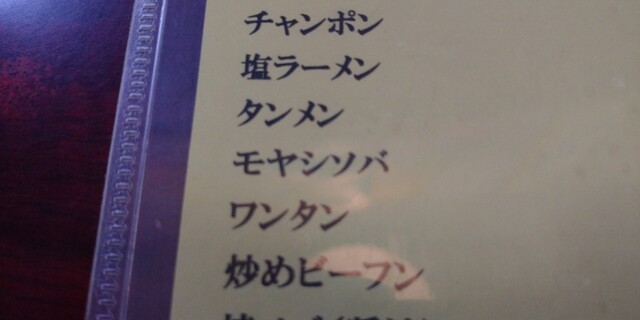 チャンポン
塩ラーメン
タンメン
モヤシソバ
ワンタン
炒めビーフン